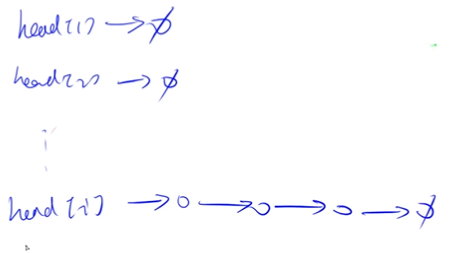 head[1] → ∅
head[2] → ∅
⋮
head[i] → o → o → o → ∅